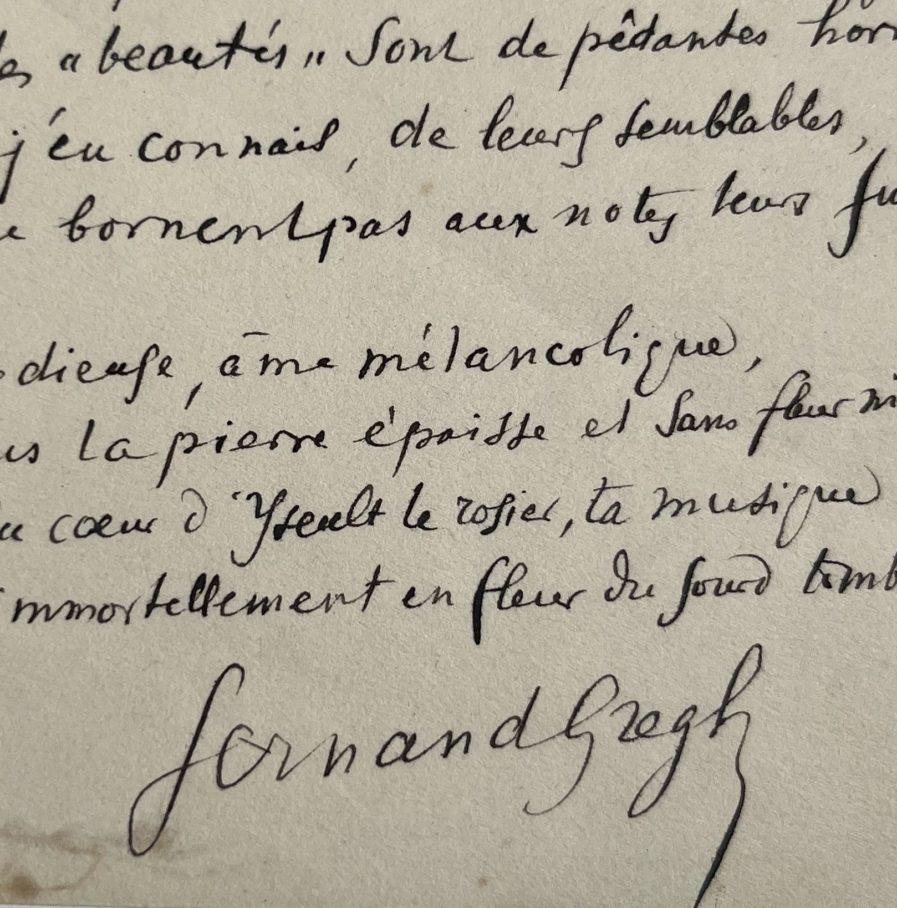 « beautés » sont de pédantes
j'en connais, de leurs semblables,
bornent pas aux notes leurs
dieuse, âme mélancolique,
la pierre épaisse et sans fleur ni
cœur d'Yseult le rosier, ta musique
immortellement en fleur du sourd
Fernand Gregh